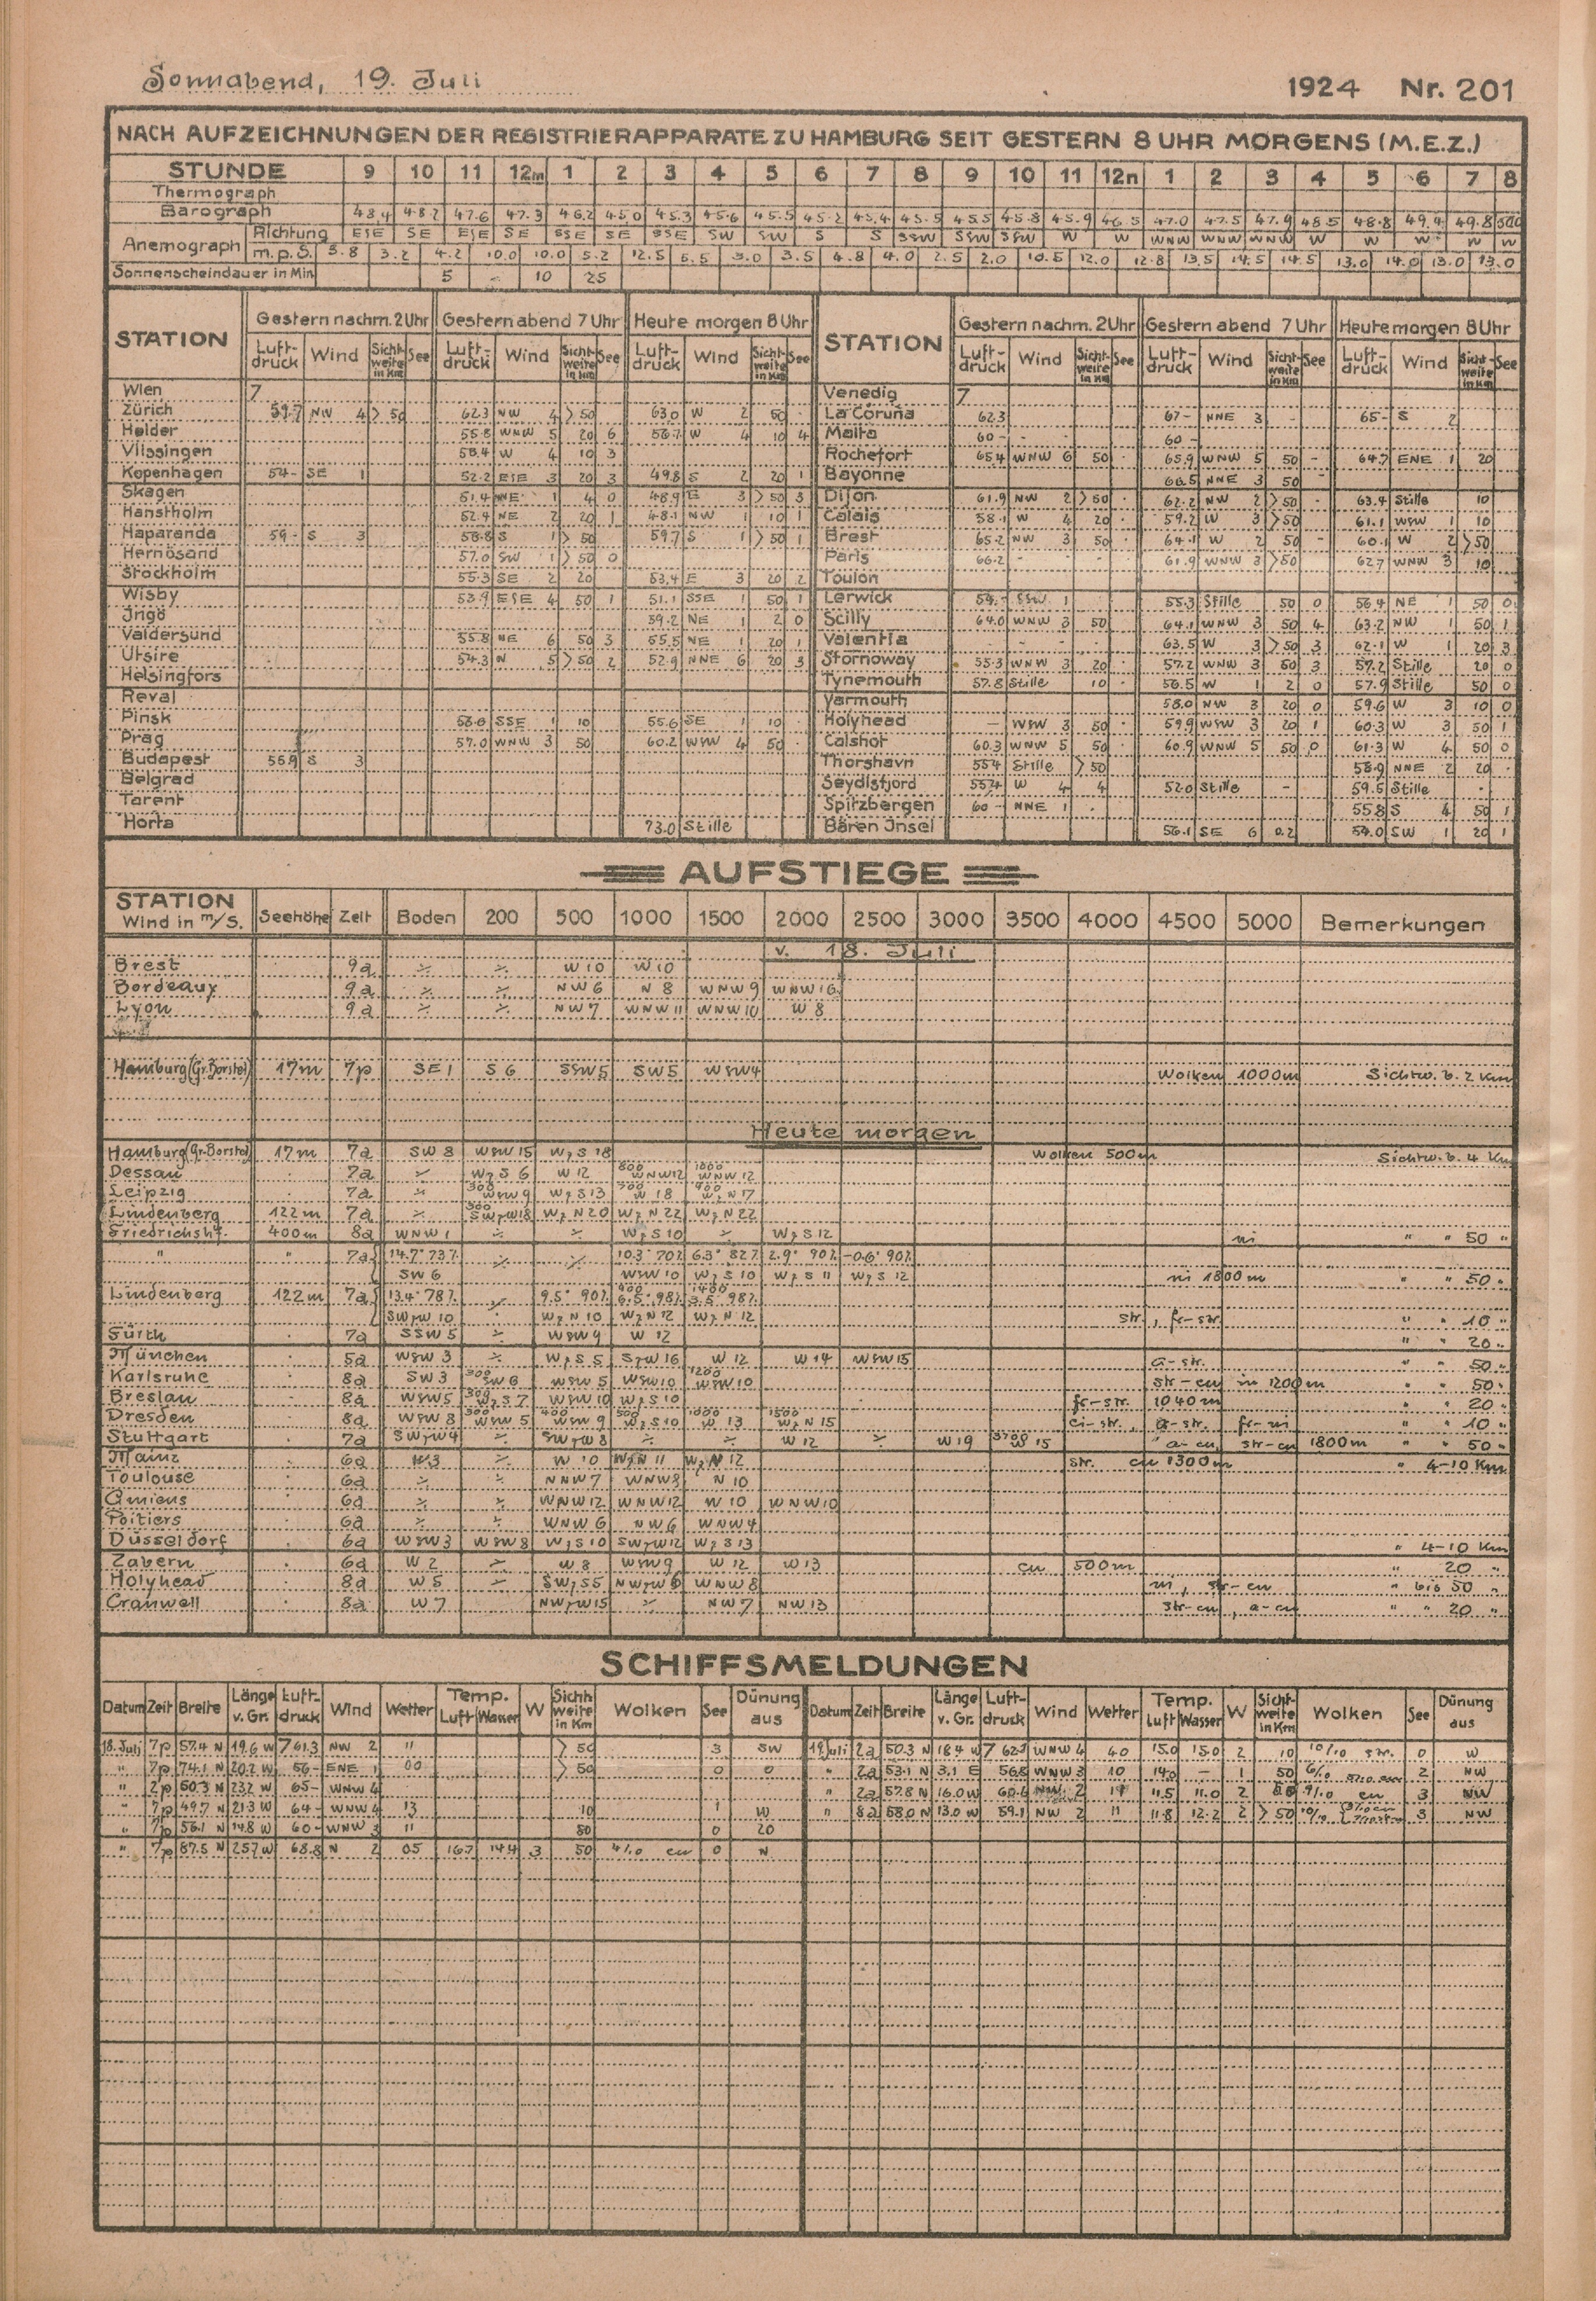 Sonnabend, 19. Juli 1924 Nr. 201
NACH AUFZEICHNUNGEN DER REGISTRIERAPPARATE ZU HAMBURG SEIT GESTERN 8 UHR MORGENS (M.E.Z.)
STUNDE 9 10 11 12m 1 2 3 4 5 6 7 8 9 10 11 12n 1 2 3 4 5 6 7 8
Thermograph
Barograph 48.4 48.2 47.6 47.3 46.2 45.0 45.3 45.6 45.5 45.2 45.4 45.5 45.5 45.8 45.9 46.5 47.0 47.5 47.9 48.5 48.8 49.4 49.8 50.0
Anemograph Richtung ESE SE ESE SE SSE SE SSE SW SW S S SSW SSW SSW W W WNW WNW WNW W W W W W
m.p.S. 3.8 3.2 4.2 10.0 10.0 5.2 12.5 5.5 3.0 3.5 4.8 4.0 2.5 2.0 10.5 12.0 12.8 13.5 14.5 14.5 13.0 14.0 13.0 13.0
Sonnenscheindauer in Min 5 - 10 25
STATION Gestern nachm. 2 Uhr Gestern abend 7 Uhr Heute morgen 8 Uhr STATION Gestern nachm. 2 Uhr Gestern abend 7 Uhr Heute morgen 8 Uhr
Luftdruck Wind Sichtweite in km See Luftdruck Wind Sichtweite in km See Luftdruck Wind Sichtweite in km See Luftdruck Wind Sichtweite in km See Luftdruck Wind Sichtweite in km See Luftdruck Wind Sichtweite in km See
Wien 7 Venedig 7
Zürich 59.7 NW 4 > 50 62.3 NW 4 > 50 63.0 W 2 50 · La Coruña 62.3 67- NNE 3 - 65- S 2
Helder 55.8 WNW 5 20 6 56.7 W 4 10 4 Malta 60- - - 60-
Vlissingen 58.4 W 4 10 3 Rochefort 65.4 WNW 6 50 · 65.9 WNW 5 50 - 64.7 ENE 1 20
Kopenhagen 54- SE 1 52.2 ESE 3 20 3 49.8 S 2 20 1 Bayonne 66.5 NNE 3 50
Skagen 51.4 NNE 1 4 0 48.9 E 3 > 50 3 Dijon 61.9 NW 2 > 50 · 62.2 NW 2 > 50 · 63.4 Stille 10
Hanstholm 52.4 NE 2 20 1 48.1 NW 1 10 1 Calais 58.1 W 4 20 · 59.2 W 3 > 50 61.1 WSW 1 10
Haparanda 59- S 3 58.8 S 1 > 50 59.7 S 1 > 50 1 Brest 65.2 NW 3 50 · 64.1 W 2 50 - 60.1 W 2 > 50
Hernösand 57.0 SW 1 > 50 0 Paris 66.2 - - 61.9 WNW 3 > 50 62.7 WNW 3 10
Stockholm 55.3 SE 2 20 53.4 E 3 20 2 Toulon
Wisby 53.9 ESE 4 50 1 51.1 SSE 1 50 1 Lerwick 54.- SSW 1 55.3 Stille 50 0 56.4 NE 1 50 0
Ingö 59.2 NE 1 2 0 Scilly 64.0 WNW 3 50 64.1 WNW 3 50 4 63.2 NW 1 50 1
Valdersund 55.8 NE 6 50 3 55.5 NE 1 20 1 Valentia - - - 63.5 W 3 > 50 3 62.1 W 1 20 3
Utsire 54.3 N 5 > 50 2 52.9 NNE 6 20 3 Stornoway 55.3 WNW 3 20 · 57.2 WNW 3 50 3 57.2 Stille 20 0
Helsingfors Tynemouth 57.8 Stille 10 · 56.5 W 1 2 0 57.9 Stille 50 0
Reval Yarmouth 58.0 NW 3 20 0 59.6 W 3 10 0
Pinsk 56.0 SSE 1 10 55.6 SE 1 10 · Holyhead - WSW 3 50 · 59.9 WSW 3 20 1 60.3 W 3 50 1
Prag 57.0 WNW 3 50 60.2 WSW 4 50 · Calshot 60.3 WNW 5 50 · 60.9 WNW 5 50 0 61.3 W 4 50 0
Budapest 55.9 S 3 Thorshavn 55.4 Stille > 50 58.9 NNE 2 20 ·
Belgrad Seydisfjord 55.4 W 4 4 52.0 Stille - 59.5 Stille ·
Tarent Spitzbergen 60- NNE 1 · 55.8 S 4 50 1
Horta 73.0 Stille Bären Insel 56.1 SE 6 0.2 54.0 SW 1 20 1
AUFSTIEGE
STATION Wind in m/S. Seehöhe Zeit Boden 200 500 1000 1500 2000 2500 3000 3500 4000 4500 5000 Bemerkungen
v. 18. Juli
Brest 9a ∻ ∻ W 10 W 10
Bordeaux 9a ∻ ∻ NW 6 N 8 WNW 9 WNW 16
Lyon 9a ∻ ∻ NW 7 WNW 11 WNW 10 W 8
Hamburg (Gr. Borstel) 17m 7p SE 1 S 6 SSW 5 SW 5 WSW 4 Wolken 1000m Sichtw. b. 2 Km
Heute morgen
Hamburg (Gr. Borstel) 17m 7a SW 8 WSW 15 WzS 18 Wolken 500m Sichtw. b. 4 Km
Dessau · 7a ∻ WzS 6 W 12 800 WNW 12 1800 WNW 12
Leipzig · 7a ∻ 300 WSW 9 WzS 13 W 18 WzN 17
Lindenberg 122m 7a ∻ 300 SWzW 18 WzN 20 WzN 22 WzN 22
Friedrichshf. 400m 8a WNW 1 ∻ ∻ WzS 10 ∻ WzS 12 ni " " 50 "
" " 7a 14.7° 73% ∻ ∻ 10.3° 70% 6.3° 82% 2.9° 90% -0.6° 90%
SW 6 WSW 10 WzS 10 WzS 11 WzS 12 ni 1800m " " 50 "
Lindenberg 122m 7a 13.4° 78% ∻ 9.5° 90% 6.5° 98% 1400 3.5° 98%
SWzW 10 WzN 10 WzN 12 WzN 12 str., fr-str. " " 10 "
Fürth · 7a SSW 5 ∻ WSW 9 W 12 " " 20 "
München · 5a WSW 3 ∻ WzS 5 SzW 16 W 12 W 14 WSW 15 a-str. " " 50 "
Karlsruhe · 8a SW 3 300 SW 6 WSW 5 WSW 10 1200 WSW 10 str-cu ni 1200m " " 50 "
Breslau · 8a WSW 5 300 WzS 7 WSW 10 WzS 10 fr-str. 1040m " " 20 "
Dresden · 8a WSW 8 300 WSW 5 400 WSW 9 500 WzS 10 1000 W 13 1500 WzN 15 ci-str. a-str. fr-ni " " 10 "
Stuttgart · 7a SWzW 4 ∻ SWzW 8 ∻ ∻ W 12 ∻ W 19 3700 W 15 a-cu, str-cu 1800m " " 50 "
Mainz · 6a W 3 ∻ W 10 WzN 11 WzN 12 str. cu 1300m " 4-10 Km
Toulouse · 6a ∻ ∻ NNW 7 WNW 8 N 10
Amiens · 6a ∻ ∻ WNW 12 WNW 12 W 10 WNW 10
Poitiers · 6a ∻ ∻ WNW 6 NW 6 WNW 4
Düsseldorf · 6a WSW 3 WSW 8 WzS 10 SWzW 12 WzS 13 " 4-10 Km
Zabern · 6a W 2 ∻ W 8 WSW 9 W 12 W 13 cu 500m " 20 "
Holyhead · 8a W 5 ∻ SWzS 5 NWzW 6 WNW 8 ni, str-cu " bis 50 "
Cranwell · 8a W 7 NWzW 15 ∻ NW 7 NW 13 str-cu, a-cu " " 20 "
SCHIFFSMELDUNGEN
Datum Zeit Breite Länge v. Gr. Luftdruck Wind Wetter Temp. Luft Wasser W Sichtweite in Km Wolken See Dünung aus Datum Zeit Breite Länge v. Gr. Luftdruck Wind Wetter Temp. Luft Wasser W Sichtweite in Km Wolken See Dünung aus
18. Juli 7p 57.4 N 19.6 W 7 61.3 NW 2 11 > 50 3 SW 19. Juli 2a 50.3 N 18.4 W 7 62.1 WNW 4 40 15.0 15.0 2 10 10/10 str. 0 W
" 7p 74.1 N 20.2 W 56- ENE 1 00 > 50 0 0 " 2a 53.1 N 3.1 E 56.8 WNW 3 10 14.0 - 1 50 6/10 2 NW
" 2p 50.3 N 23.2 W 65- WNW 4 " 2a 57.8 N 16.0 W 60.6 NW 2 19 11.5 11.0 2 9/10 cu 3 NW
" 7p 49.7 N 21.3 W 64- WNW 4 13 10 1 W " 8a 58.0 N 13.0 W 59.1 NW 2 11 11.8 12.2 2 > 50 10/10 3 NW
" 7p 56.1 N 14.8 W 60- WNW 3 11 80 0 20
" 7p 87.5 N 25.7 W 68.8 N 2 05 16.7 14.4 3 50 4/10 cu 0 N